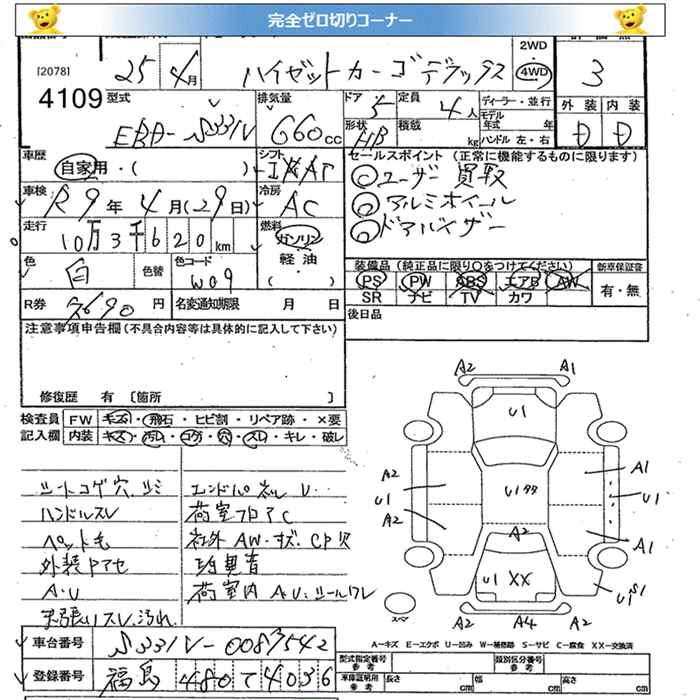 完全ゼロ切りコーナー
[2078]
4109
25年4月 ハイゼットカーゴデラックス
2WD
4WD
3
型式 EBD-S331V
排気量 660cc
ドア 5 定員 4人
形状 HB 積載 kg
ディーラー・並行
モデル年式 年
ハンドル 左・右
外装 内装
D D
車歴 自家用・( )
シフト IAAT
車検 R9年4月(29日)
冷房 AC
走行 10万3千620km
燃料 ガソリン
軽油
( )
色 白 色替 色コード W09
R券 円 名変通知期限 月 日
セールスポイント (正常に機能するものに限ります)
ユーザー買取
アルミホイール
ドアバイザー
装備品 (純正品に限り○をつけてください) 新車保証書
PS PW ABS エアB AW 有・無
SR ナビ TV カワ
後日品
注意事項申告欄 (不具合内容等は具体的に記入して下さい)
修復歴 有 [箇所 ]
検査員 FW キズ・飛石・ヒビ割・リペア跡・×要
記入欄 内装 キズ・汚れ・コゲ・穴・スレ・キレ・破レ
シートコゲ穴.シミ
ハンドルスレ
ペット毛
外装
A・U
天張リスレ汚れ
エンドパネル U
荷室フロアC
社外AW.キズ.CP欠
異音
荷室内 A.U.
車台番号 S331V-0083542
登録番号 福島 480 て 4036
A2 A1
U1
A2 A1
U1 U1
A2 A1
U1
A2
U1 XX
U1 S1
A2 A4 A2
スペア
A-キズ E-エクボ U-凹み W-補修跡 S-サビ C-腐食 XX-交換済
型式指定番号 参考 類別区分番号 参考
車庫証明用 参考 長さ cm 幅 cm 高さ cm